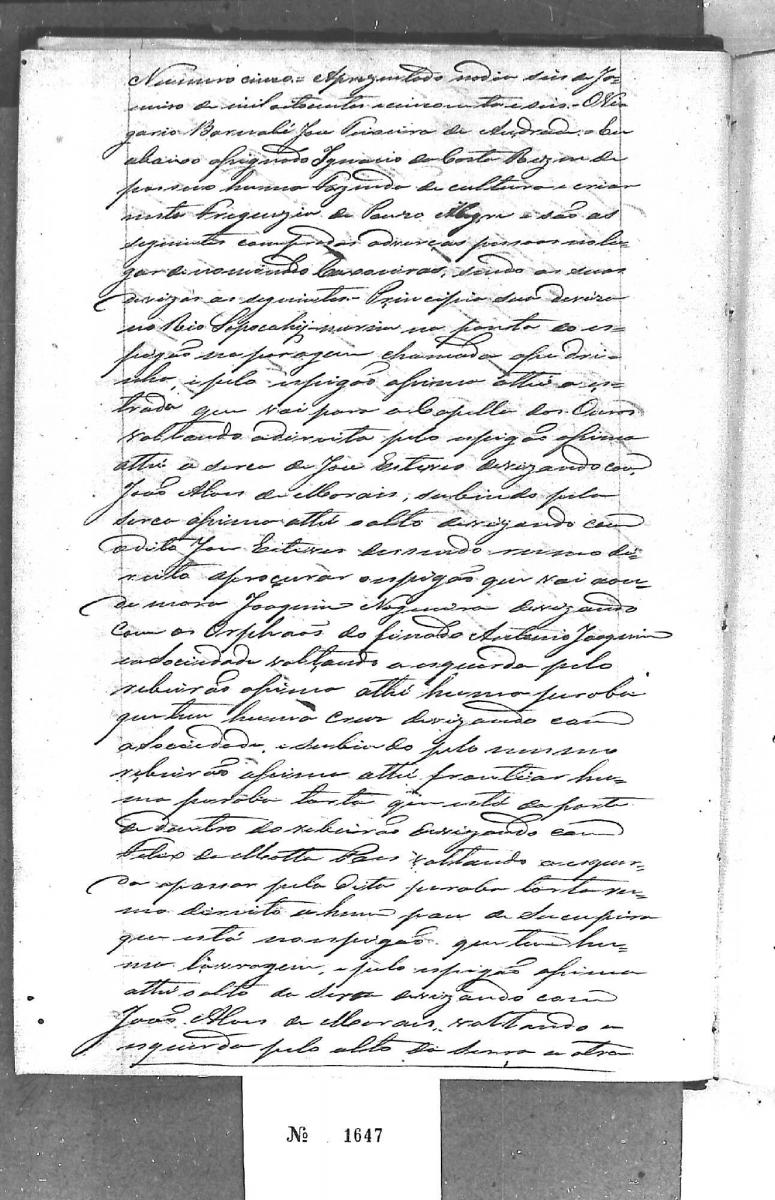 Numero cinco = Aprezentado nodia seis de Ja=
neiro de mil oitocentos ecincoenta eseis = O Vi=
gario Barnabé Joze Teixeira de Andrade = Eu
abaixo asignado Ignacio da Costa Rezende
possuo huma Fazenda de cultura e criar
nesta Freguezia de Pouzo Alegre e são as
seguintes compradas adverças pessoas nolu=
gar denominado Caxoeiras, sendo as suas
devizas as seguintes = Principia sua deviza
no Rio Sapocahy-mirim na ponta do es=
pigão na paragem chamada apedri=
nha, e pelo espigão asima athé a es=
trada que vai para a Capella dos Ouros
voltando adireita pelo espigão asima
athé a serca de Joze Esteves devizando com
João Alves de Morais, subindo pela
serca asima athé oalto devizando com
odito Joze Esteves dessendo rumo di=
reito aprocurar oespigão que vai aon=
de mora Joaquim Nogueira devizando
com os Orphaõs do finado Antonio Joaquim
em Sociedade voltando a esquerda pelo
ribeirão asima athé huma peroba
que tem huma Cruz devizando com
a Sociedade, e subindo pelo mesmo
ribeirão asima athé frontiar hu=
ma peroba torta que está da parte
de dentro do ribeirão devizando com
Felix da Motta Paes voltando a esquer=
da apassar pela dita peroba torta ru=
mo direito a hum pau de Sucupira
que está noespigão que tem hu=
ma lavragem, e pelo espigão asima
athé oalto da Serra devizando com
João Alves de Morais, voltando a
esquerda pelo alto da serra a otra
Nº 1647